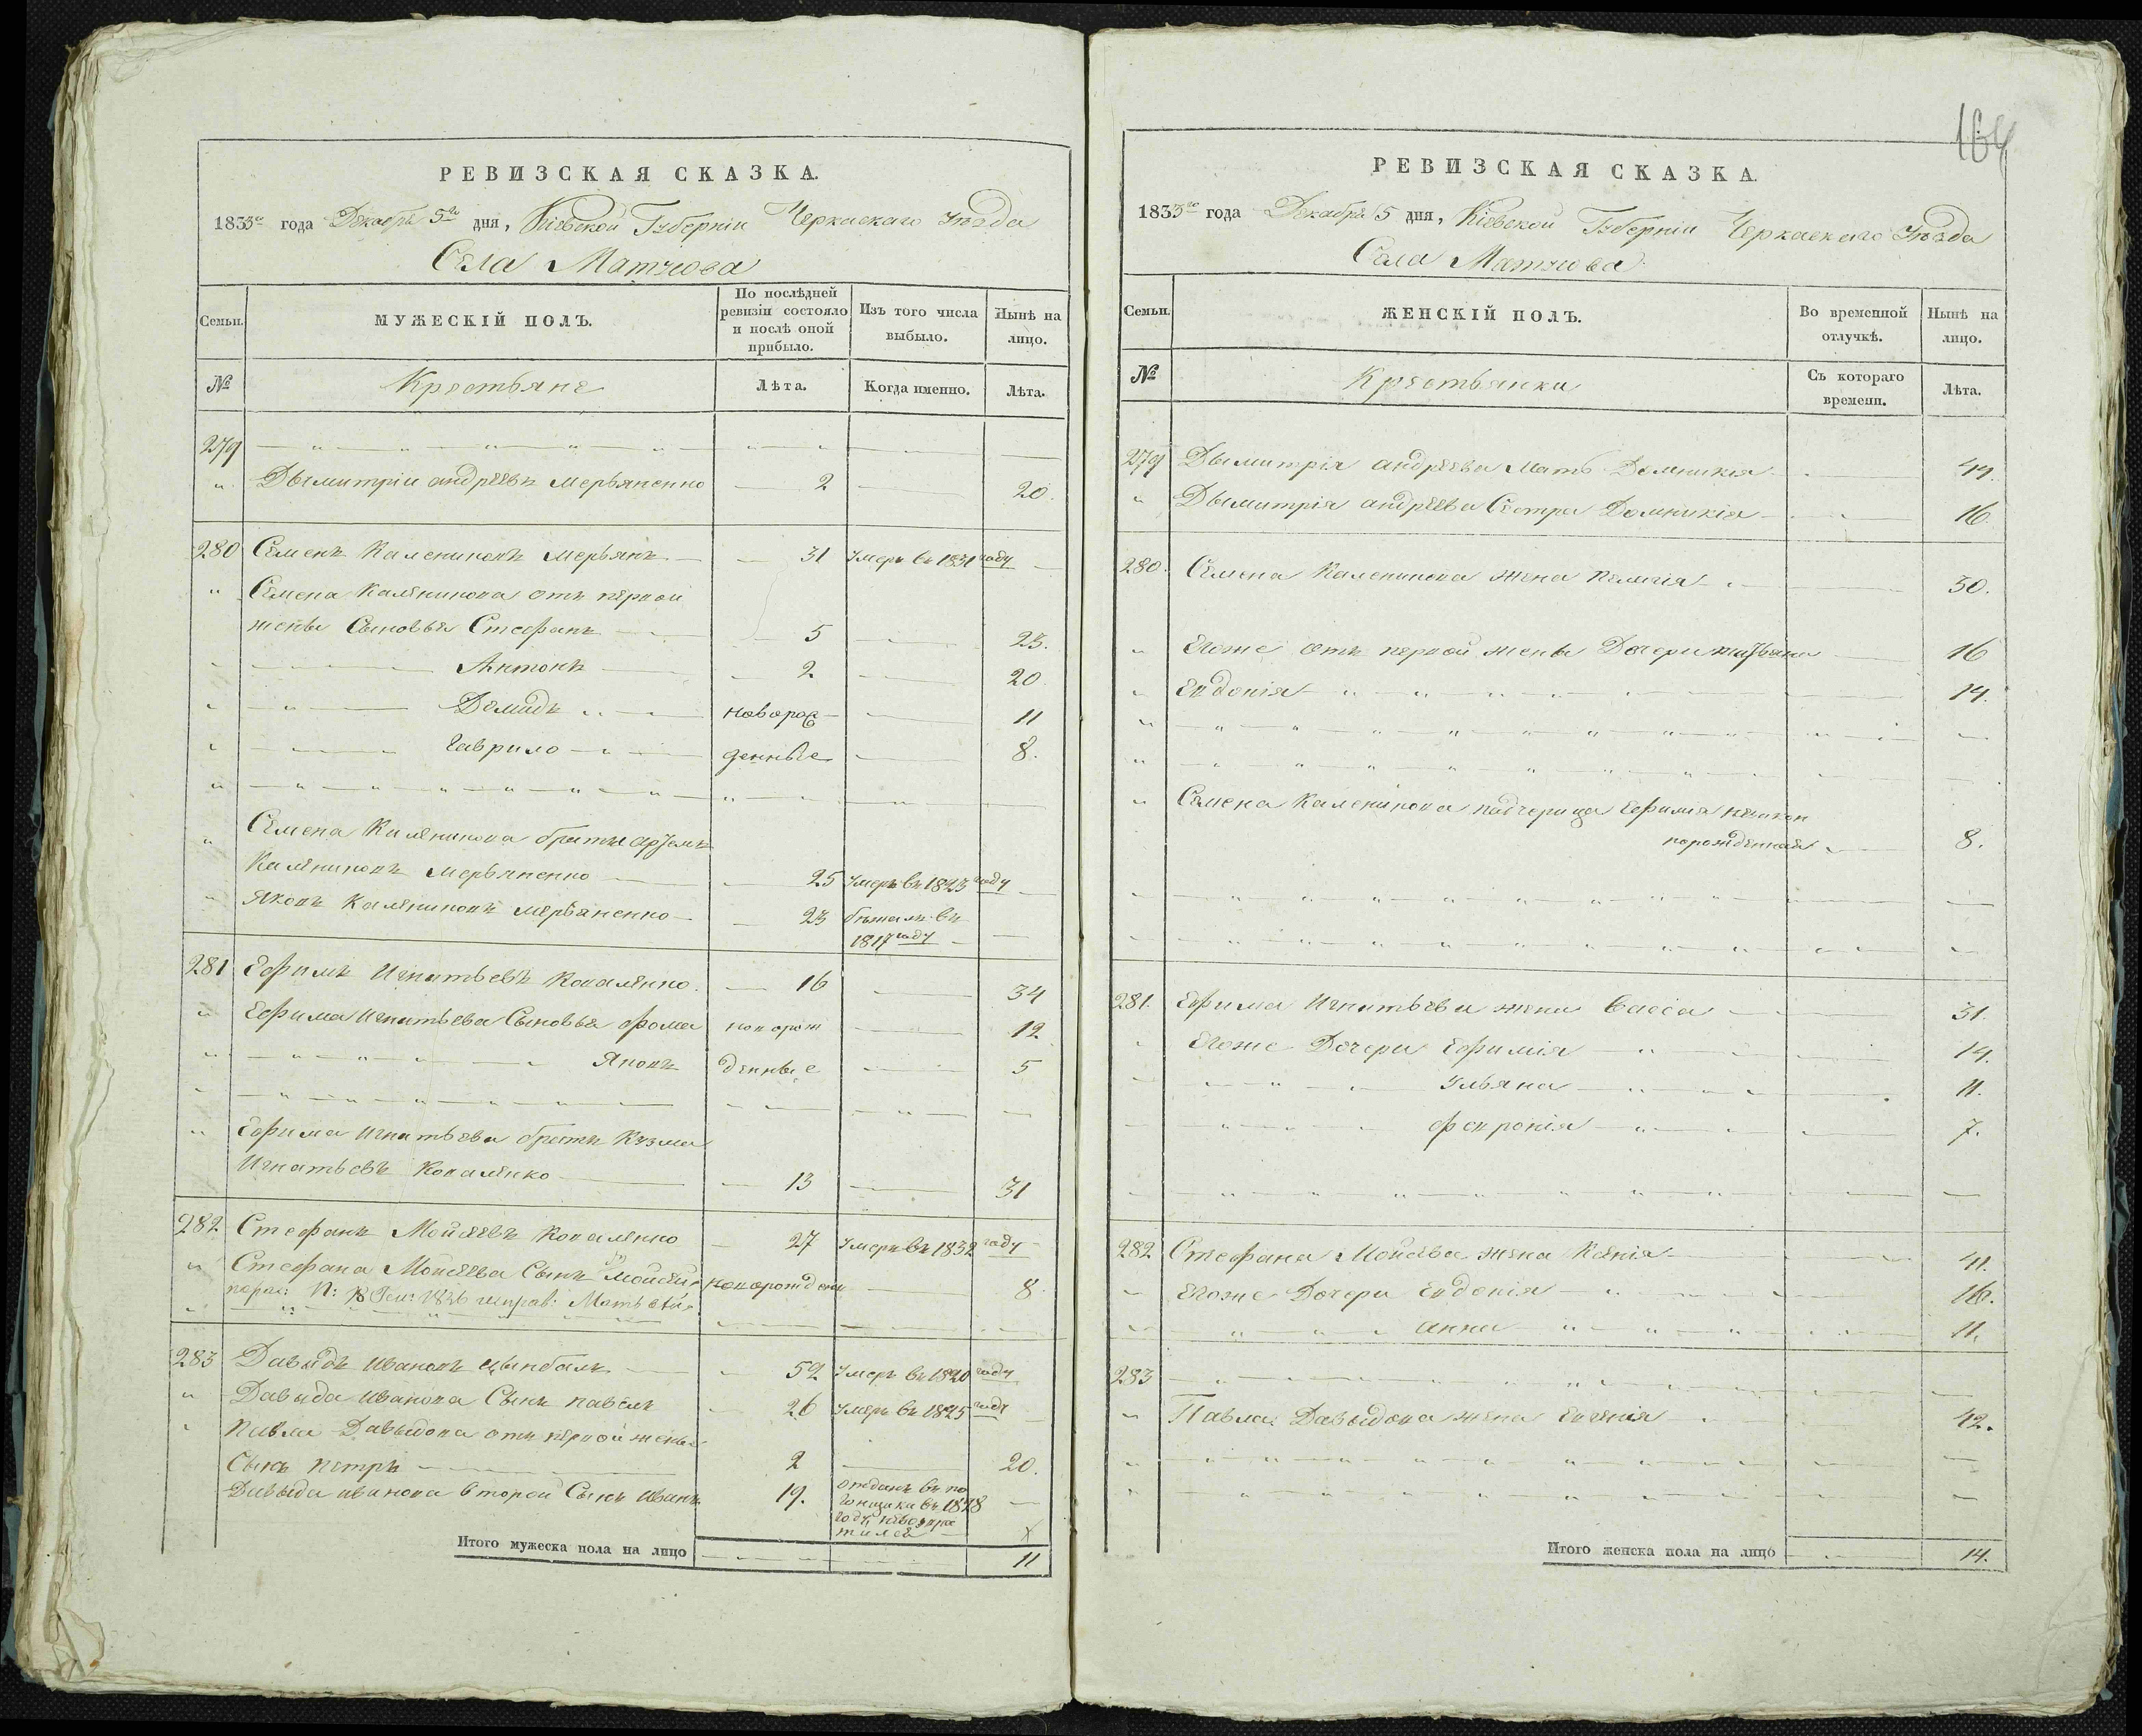 164
РЕВИЗСКАЯ СКАЗКА.
1833го года Декабря 5го дня, Кіевской Губерніи Черкаскаго Уѣзда
Села Матусова
Семьи.
МУЖЕСКІЙ ПОЛЪ.
По послѣдней ревизіи состояло и послѣ оной прибыло.
Изъ того числа выбыло.
Нынѣ на лицо.
№
Крестьяне
Лѣта.
Когда именно.
Лѣта.
279
Дымитріи андрѣевъ Мервяненко 2 20.
280 Семенъ Калениковъ Мервянъ 31 Умеръ въ 1831 году
Семена Каленикова отъ первой
жены Сыновья Стефанъ 5 23.
Антонъ 2 20
Демидъ новорож 11
Гаврило денные 8.
Семена Каленикова братъ
Калениковъ Мервяненко 25 Умеръ въ 1823 году
Яковъ Калениковъ Мервяненко 23 бѣжалъ въ
1817 году
281 Ефимъ Игнатьевъ Коваленко. 16 34
Ефима Игнатьева Сыновья Фома новорож 12
Яковъ денные 5
Ефима Игнатьева братъ Кузма
Игнатьевъ Коваленко 13 31
282 Стефанъ Мойсеевъ Коваленко 27 Умеръ въ 1832 году
Стефана Мойсеева Сынъ Мойсей новорожден 8
1836 исправ: Матвѣй
283 Давыдъ Ивановъ Цымбалъ 52 Умеръ въ 1820 году
Давыда Иванова Сынъ Павелъ 26 Умеръ въ 1825 году
Павла Давыдова отъ первой жены
Сынъ Петръ 2 20.
Давыда Иванова второй Сынъ Иванъ 19. отданъ въ по
гонщики въ 1828
году,
Итого мужеска пола на лицо 11
РЕВИЗСКАЯ СКАЗКА.
1833го года Декабря 5 дня, Кіевской Губерніи Черкаскаго Уѣзда
Села Матусова
Семьи.
ЖЕНСКІЙ ПОЛЪ.
Во временной отлучкѣ.
Нынѣ на лицо.
№
Крестьянки
Съ котораго времени.
Лѣта.
279 Дымитрія андрѣева Мать Домникія
Дымитрія андрѣева Сестра Домникія 16.
280. Семена Каленикова жена Пелагія 50.
Егоже отъ первой жены Дочери 16
Евдокія 14.
Семена Каленикова падчерица Ефимія
порожденная 8.
281. Ефима Игнатьева жена Васса 31.
Егоже Дочери Ефимія 14.
Ульяна 11.
Февронія 7.
282 Стефана Мойсеева жена Ксенія 41.
Егоже Дочери Евдокія 16.
анна 11.
283
Павла Давыдова жена Евгенія 42.
Итого женска пола на лицо 14.